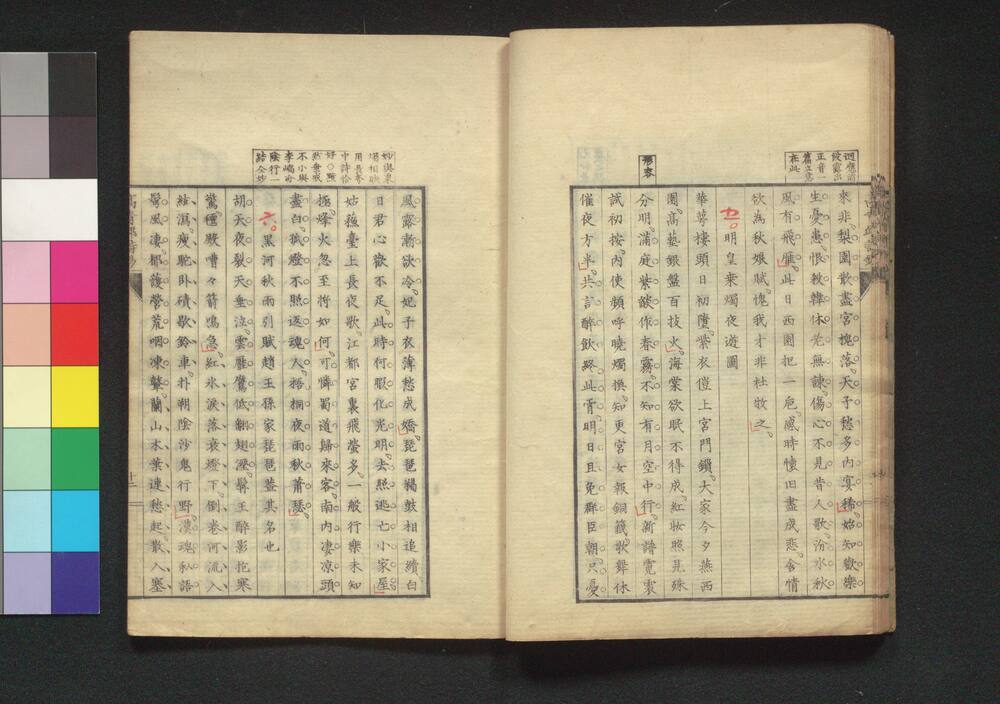 來非梨園散盡宮槐落天子愁多內宴稀始知歡樂
生憂患恨殺韓休老無諫傷心不見昔人歌汾水秋
風有飛雁此日西園把一卮感時懷舊盡成悲含情
欲為秋娘賦愧我才非杜牧之
十一。明皇秉燭夜遊圖
華萼樓頭日初墮紫衣催上宮門鎖大家今夕燕西
園高爇銀盤百技火海棠欲眠不得成紅妝照見殊
形容
分明滿庭紫燄作春霧不知有月空中行新譜霓裳
試初按內使頻呼曉燭換知更宮女報銅籤歌舞休
催夜方半共言醉飲終此宵明日且免群臣朝只憂
風露漸欲冷妃子衣薄愁成嬌琵琶羯鼓相追續白
日君心歡不足此時何暇化光明去照逃亡小家屋
姑蘇臺上長夜歌江都宮裏飛螢多一般行樂未知
極烽火忽至將如何可憐蜀道歸來客南內凄凉頭
盡白孤燈不照返魂人梧桐夜雨秋蕭瑟
六。黑河秋雨引賦趙王孫家琵琶蓋其名也
胡天夜裂天垂泣雲雁鷹低翻翅溼髯王醉影抱寒
驚氊殿嘈々箭鳴急紅氷淚落哀燈下倒卷河流入
絃瀉瘦駝臥磧歇鈴車朴朔陰沙鬼行野漢魂私語
鬢風凄都護營荒咽凍鼙蘭山木葉連愁起散入塞